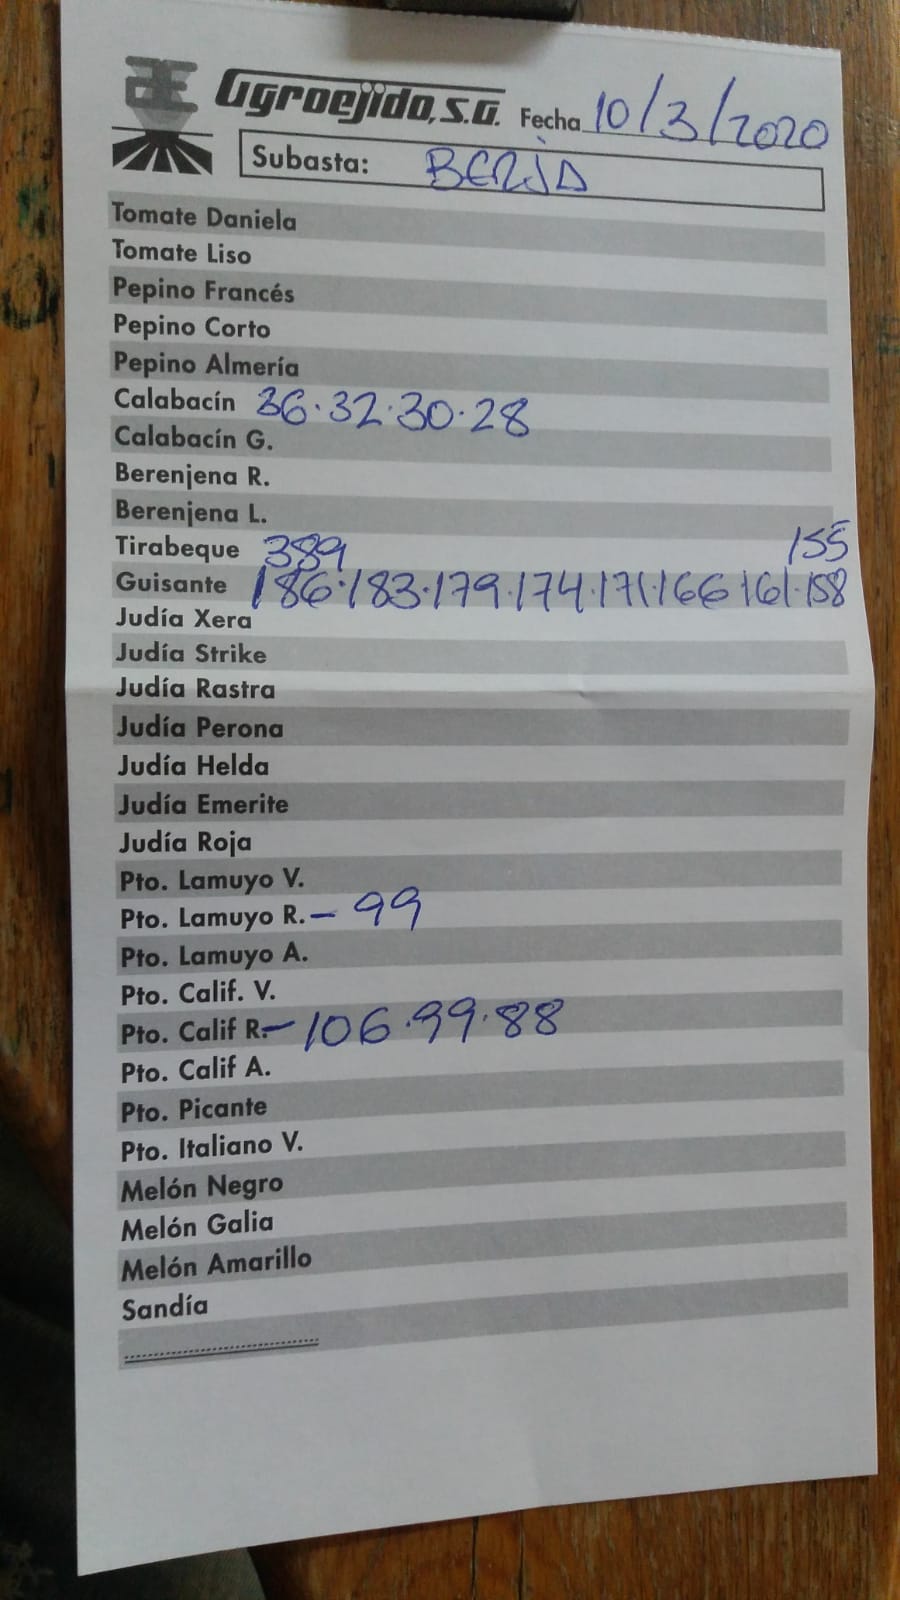 Agroejido, S.A. Fecha 10/3/2020
Subasta: BERJA
Tomate Daniela
Tomate Liso
Pepino Francés
Pepino Corto
Pepino Almería
Calabacín 36.32.30.28
Calabacín G.
Berenjena R.
Berenjena L.
Tirabeque 389 155
Guisante 186.183.179.174.171.166 161.158
Judía Xera
Judía Strike
Judía Rastra
Judía Perona
Judía Helda
Judía Emerite
Judía Roja
Pto. Lamuyo V.
Pto. Lamuyo R. - 99
Pto. Lamuyo A.
Pto. Calif. V.
Pto. Calif R. - 106.99.88
Pto. Calif A.
Pto. Picante
Pto. Italiano V.
Melón Negro
Melón Galia
Melón Amarillo
Sandía